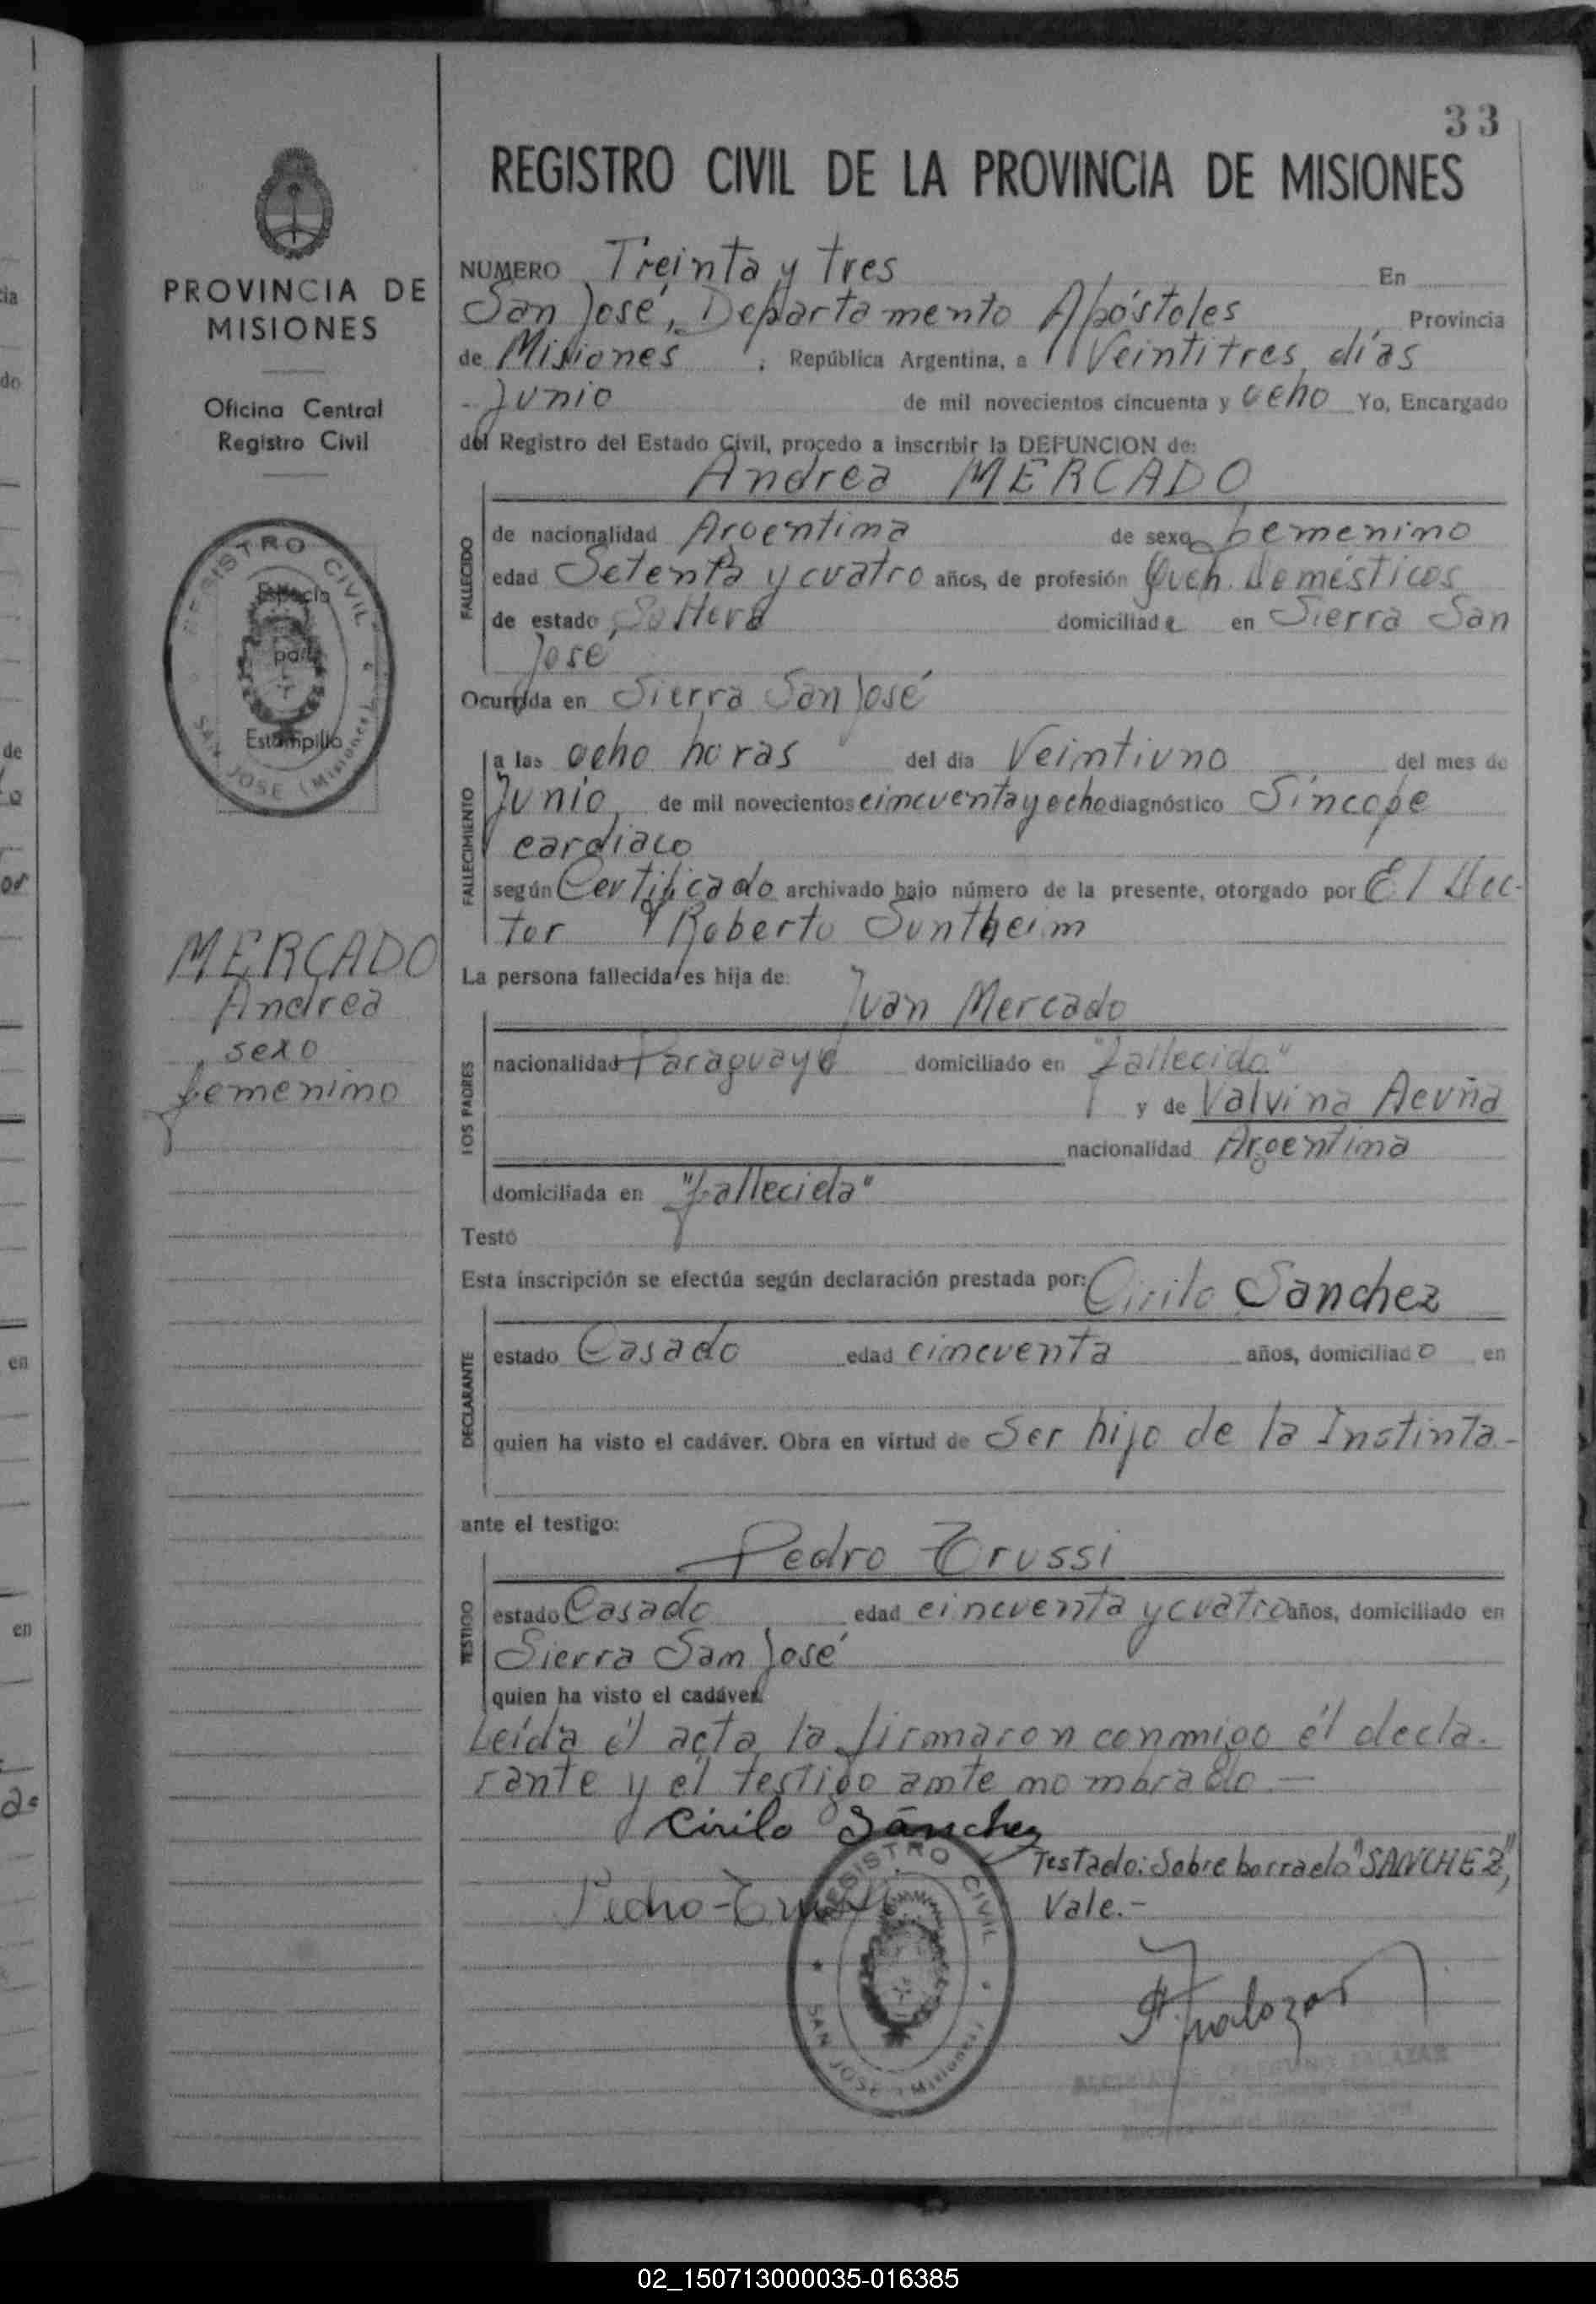 33
REGISTRO CIVIL DE LA PROVINCIA DE MISIONES
PROVINCIA DE
MISIONES
Oficina Central
Registro Civil
REGISTRO CIVIL
SAN JOSE (Misiones)
Espacio
para
Estampilla
MERCADO
Andrea
sexo
femenino
NUMERO Treinta y tres En
San José, Departamento Apóstoles Provincia
de Misiones, República Argentina, a Veintitres días
Junio de mil novecientos cincuenta y ocho Yo, Encargado
del Registro del Estado Civil, procedo a inscribir la DEFUNCION de:
Andrea MERCADO
FALLECIDO
de nacionalidad Argentina de sexo femenino
edad Setenta y cuatro años, de profesión Queh. domésticos
de estado Soltera domiciliada en Sierra San
José
Ocurrida en Sierra San José
FALLECIMIENTO
a las ocho horas del día Veintiuno del mes de
Junio de mil novecientos cincuenta y ocho diagnóstico Síncope
cardiaco
según Certificado archivado bajo número de la presente, otorgado por El Doc-
tor Roberto Suntheim
La persona fallecida es hija de:
Juan Mercado
LOS PADRES
nacionalidad Paraguayo domiciliado en "fallecido"
y de Valvina Acuña
nacionalidad Argentina
domiciliada en "fallecida"
Testó
Esta inscripción se efectúa según declaración prestada por: Cirilo Sanchez
DECLARANTE
estado Casado edad cincuenta años, domiciliado en
quien ha visto el cadáver. Obra en virtud de Ser hijo de la Instinta-
ante el testigo:
Pedro Trussi
TESTIGO
estado Casado edad cincuenta y cuatro años, domiciliado en
Sierra San José
quien ha visto el cadáver.
Leída él acta, la firmaron conmigo él decla-
rante y el testigo ante nombrado.—
Cirilo Sánchez
Testado: Sobre borrado "SANCHEZ",
Pedro Trussi
Vale.-
REGISTRO CIVIL
SAN JOSE (Misiones)
SALAZAR
02_150713000035-016385